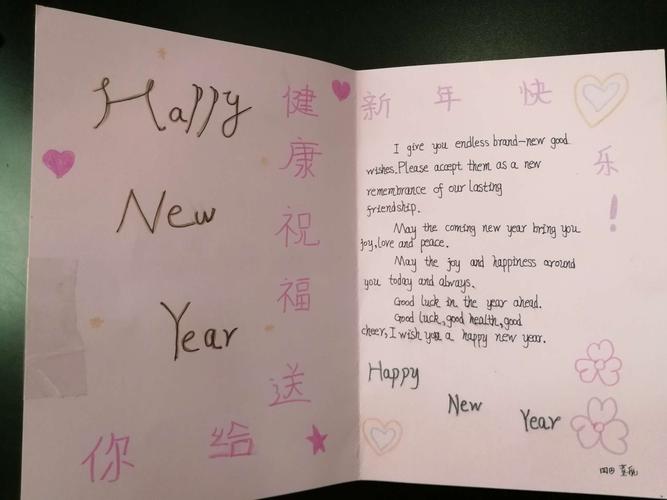 Happy
New
Year
健康祝福送
给你
新年快乐！
I give you endless brand-new good
wishes. Please accept them as a new
remembrance of our lasting
friendship.
May the coming new year bring you
joy, love and peace.
May the joy and happiness around
you today and always.
Good luck in the year ahead.
Good luck, good health, good
cheer, I wish you a happy new year.
Happy
New
Year